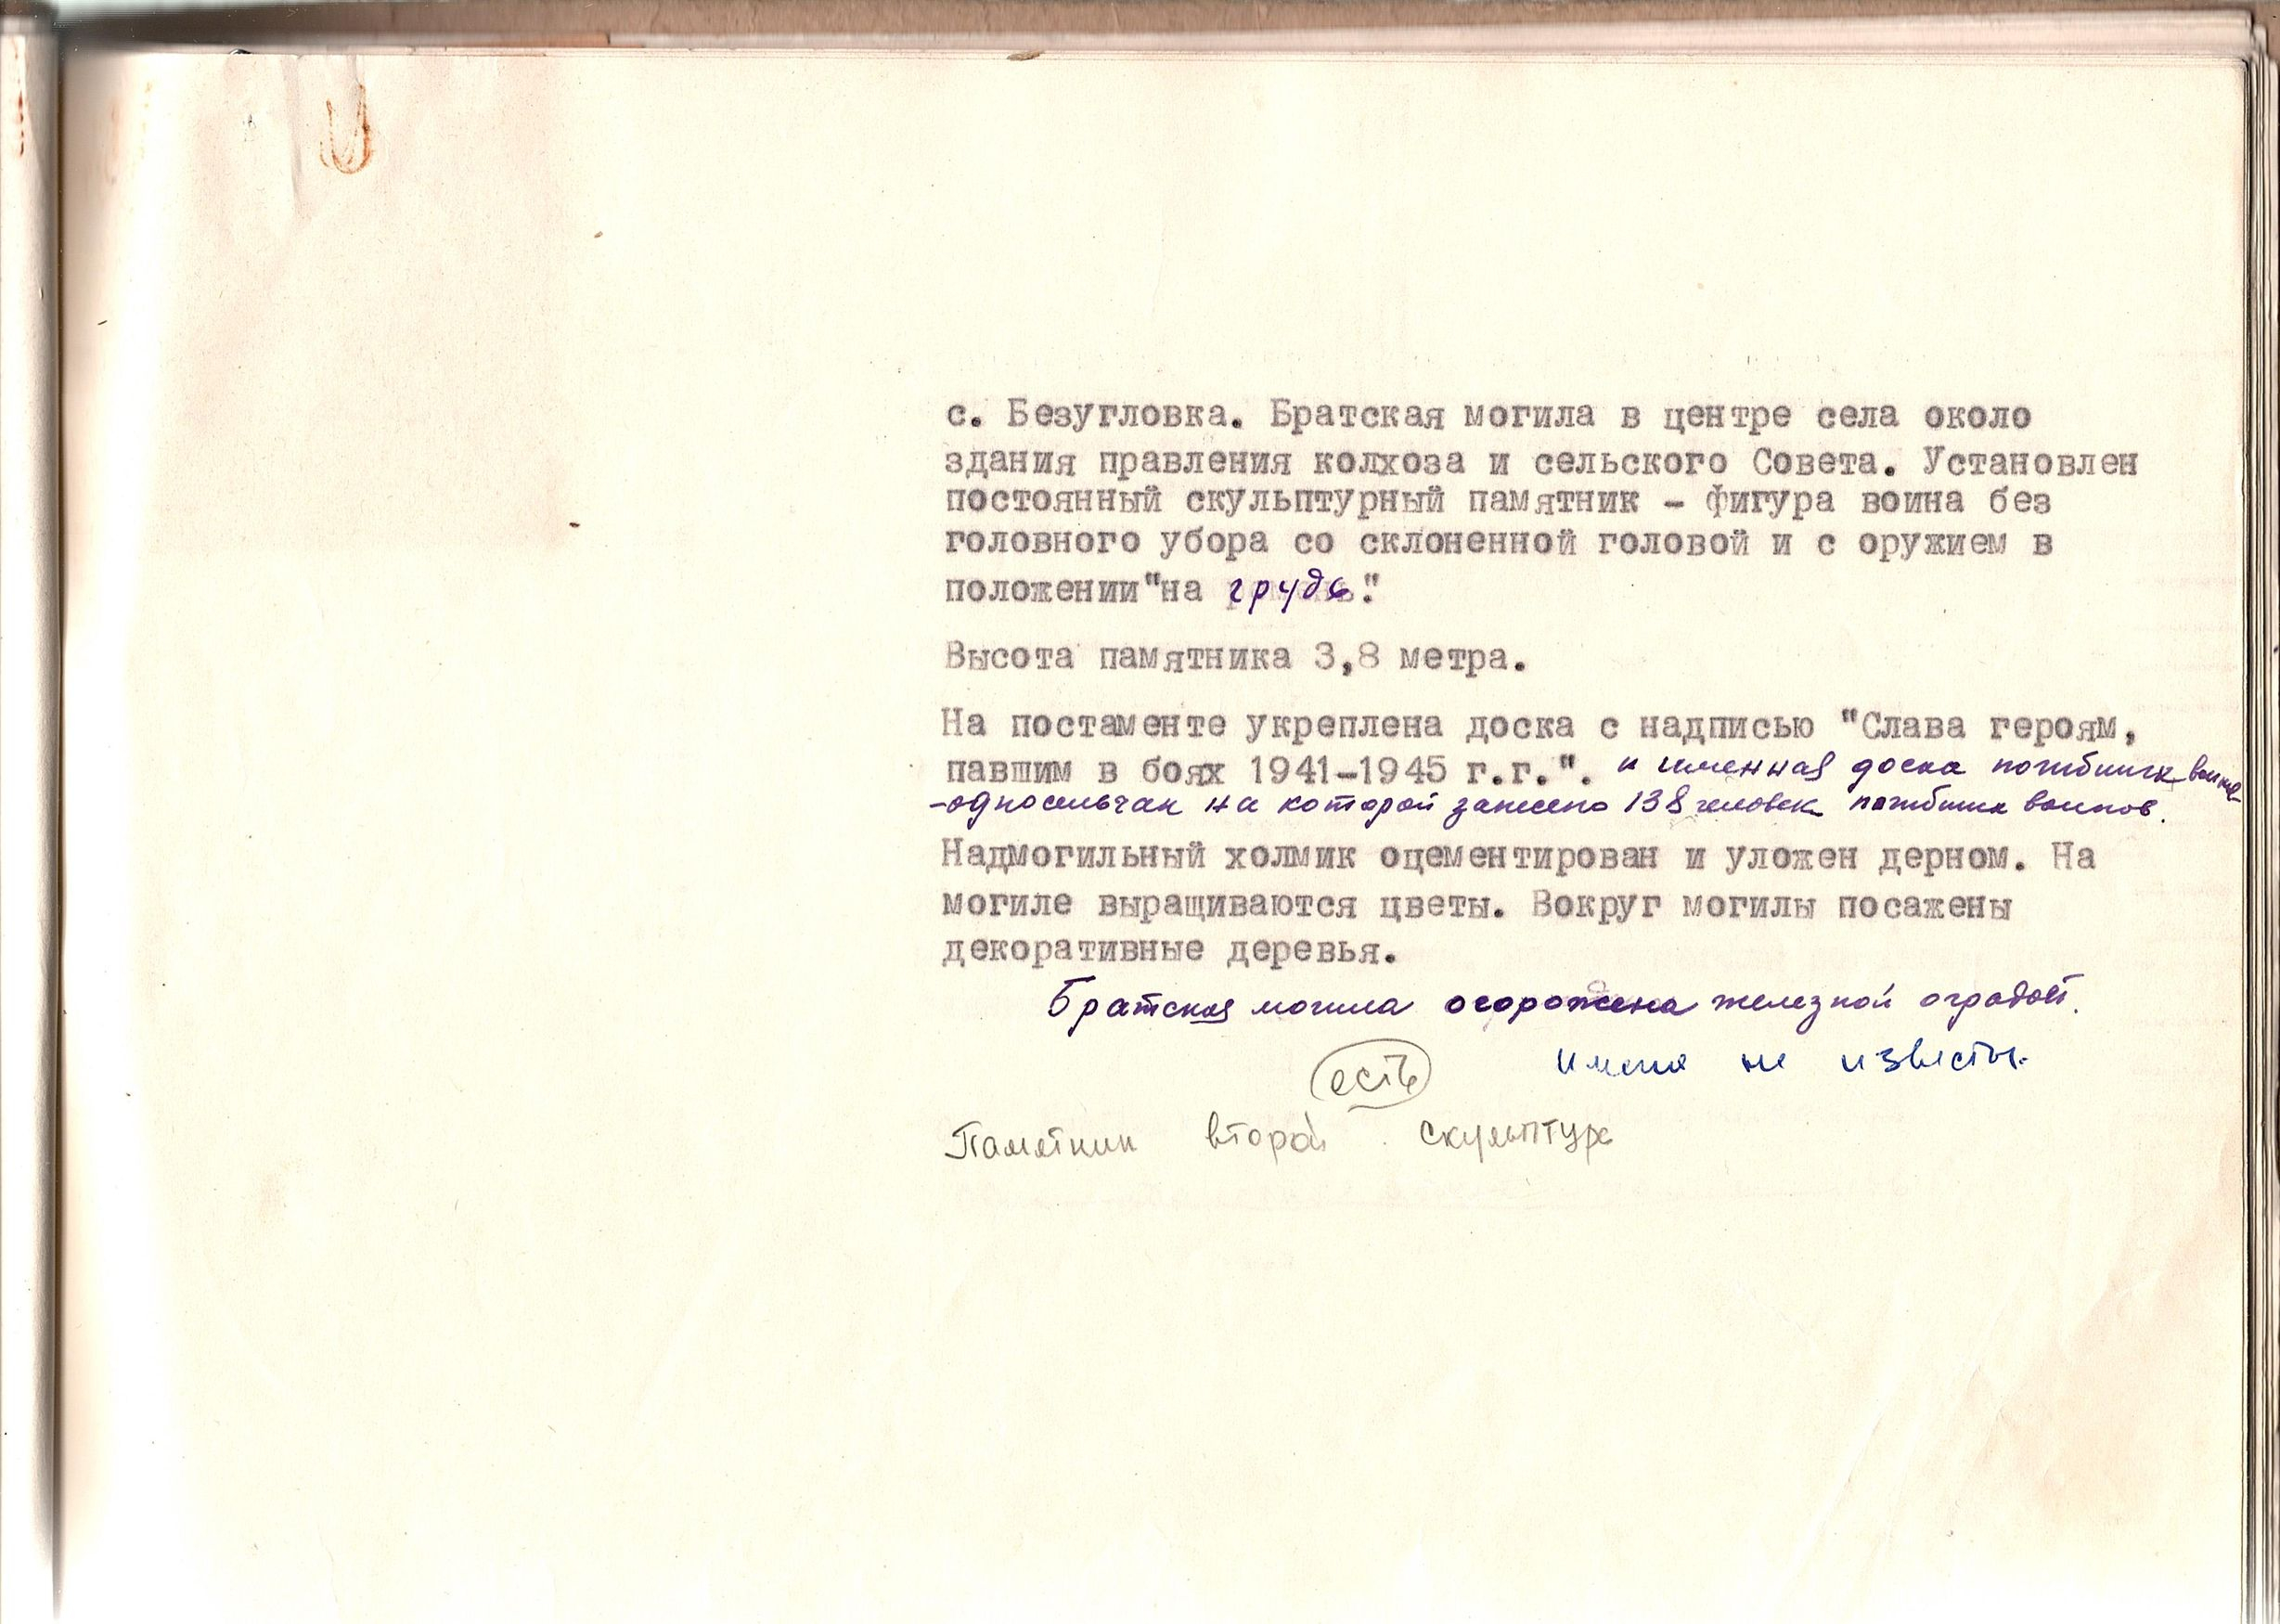 с. Безугловка. Братская могила в центре села около
здания правления колхоза и сельского Совета. Установлен
постоянный скульптурный памятник - фигура воина без
головного убора со склоненной головой и с оружием в
положении "на грудь".
Высота памятника 3,8 метра.
На постаменте укреплена доска с надписью "Слава героям,
павшим в боях 1941-1945 г.г.". и именная доска погибших
-односельчан на которой занесено 138 человек погибших воинов.
Надмогильный холмик оцементирован и уложен дерном. На
могиле выращиваются цветы. Вокруг могилы посажены
декоративные деревья.
Братская могила огорожена железной оградой.
имена не известны.
есть
Памятник второй скульптура